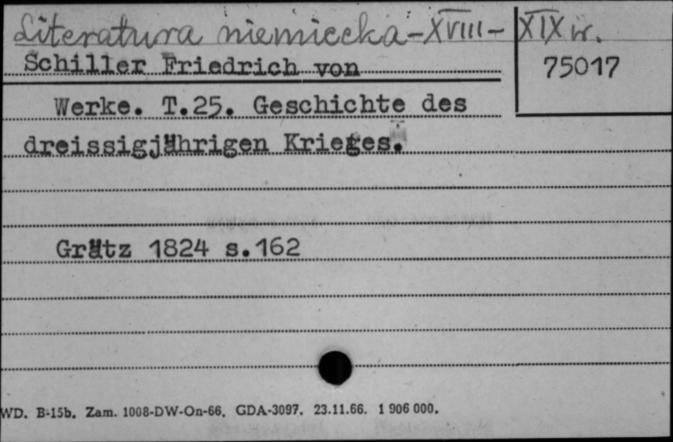 Literatura niemiecka - XVIII - XIX w.
Schiller Friedrich von
75017
Werke. T.25. Geschichte des
dreissigjährigen Krieges.
Grätz 1824 s.162
WD. B-15b. Zam. 1008-DW-On-66. GDA-3097. 23.11.66. 1 906 000.